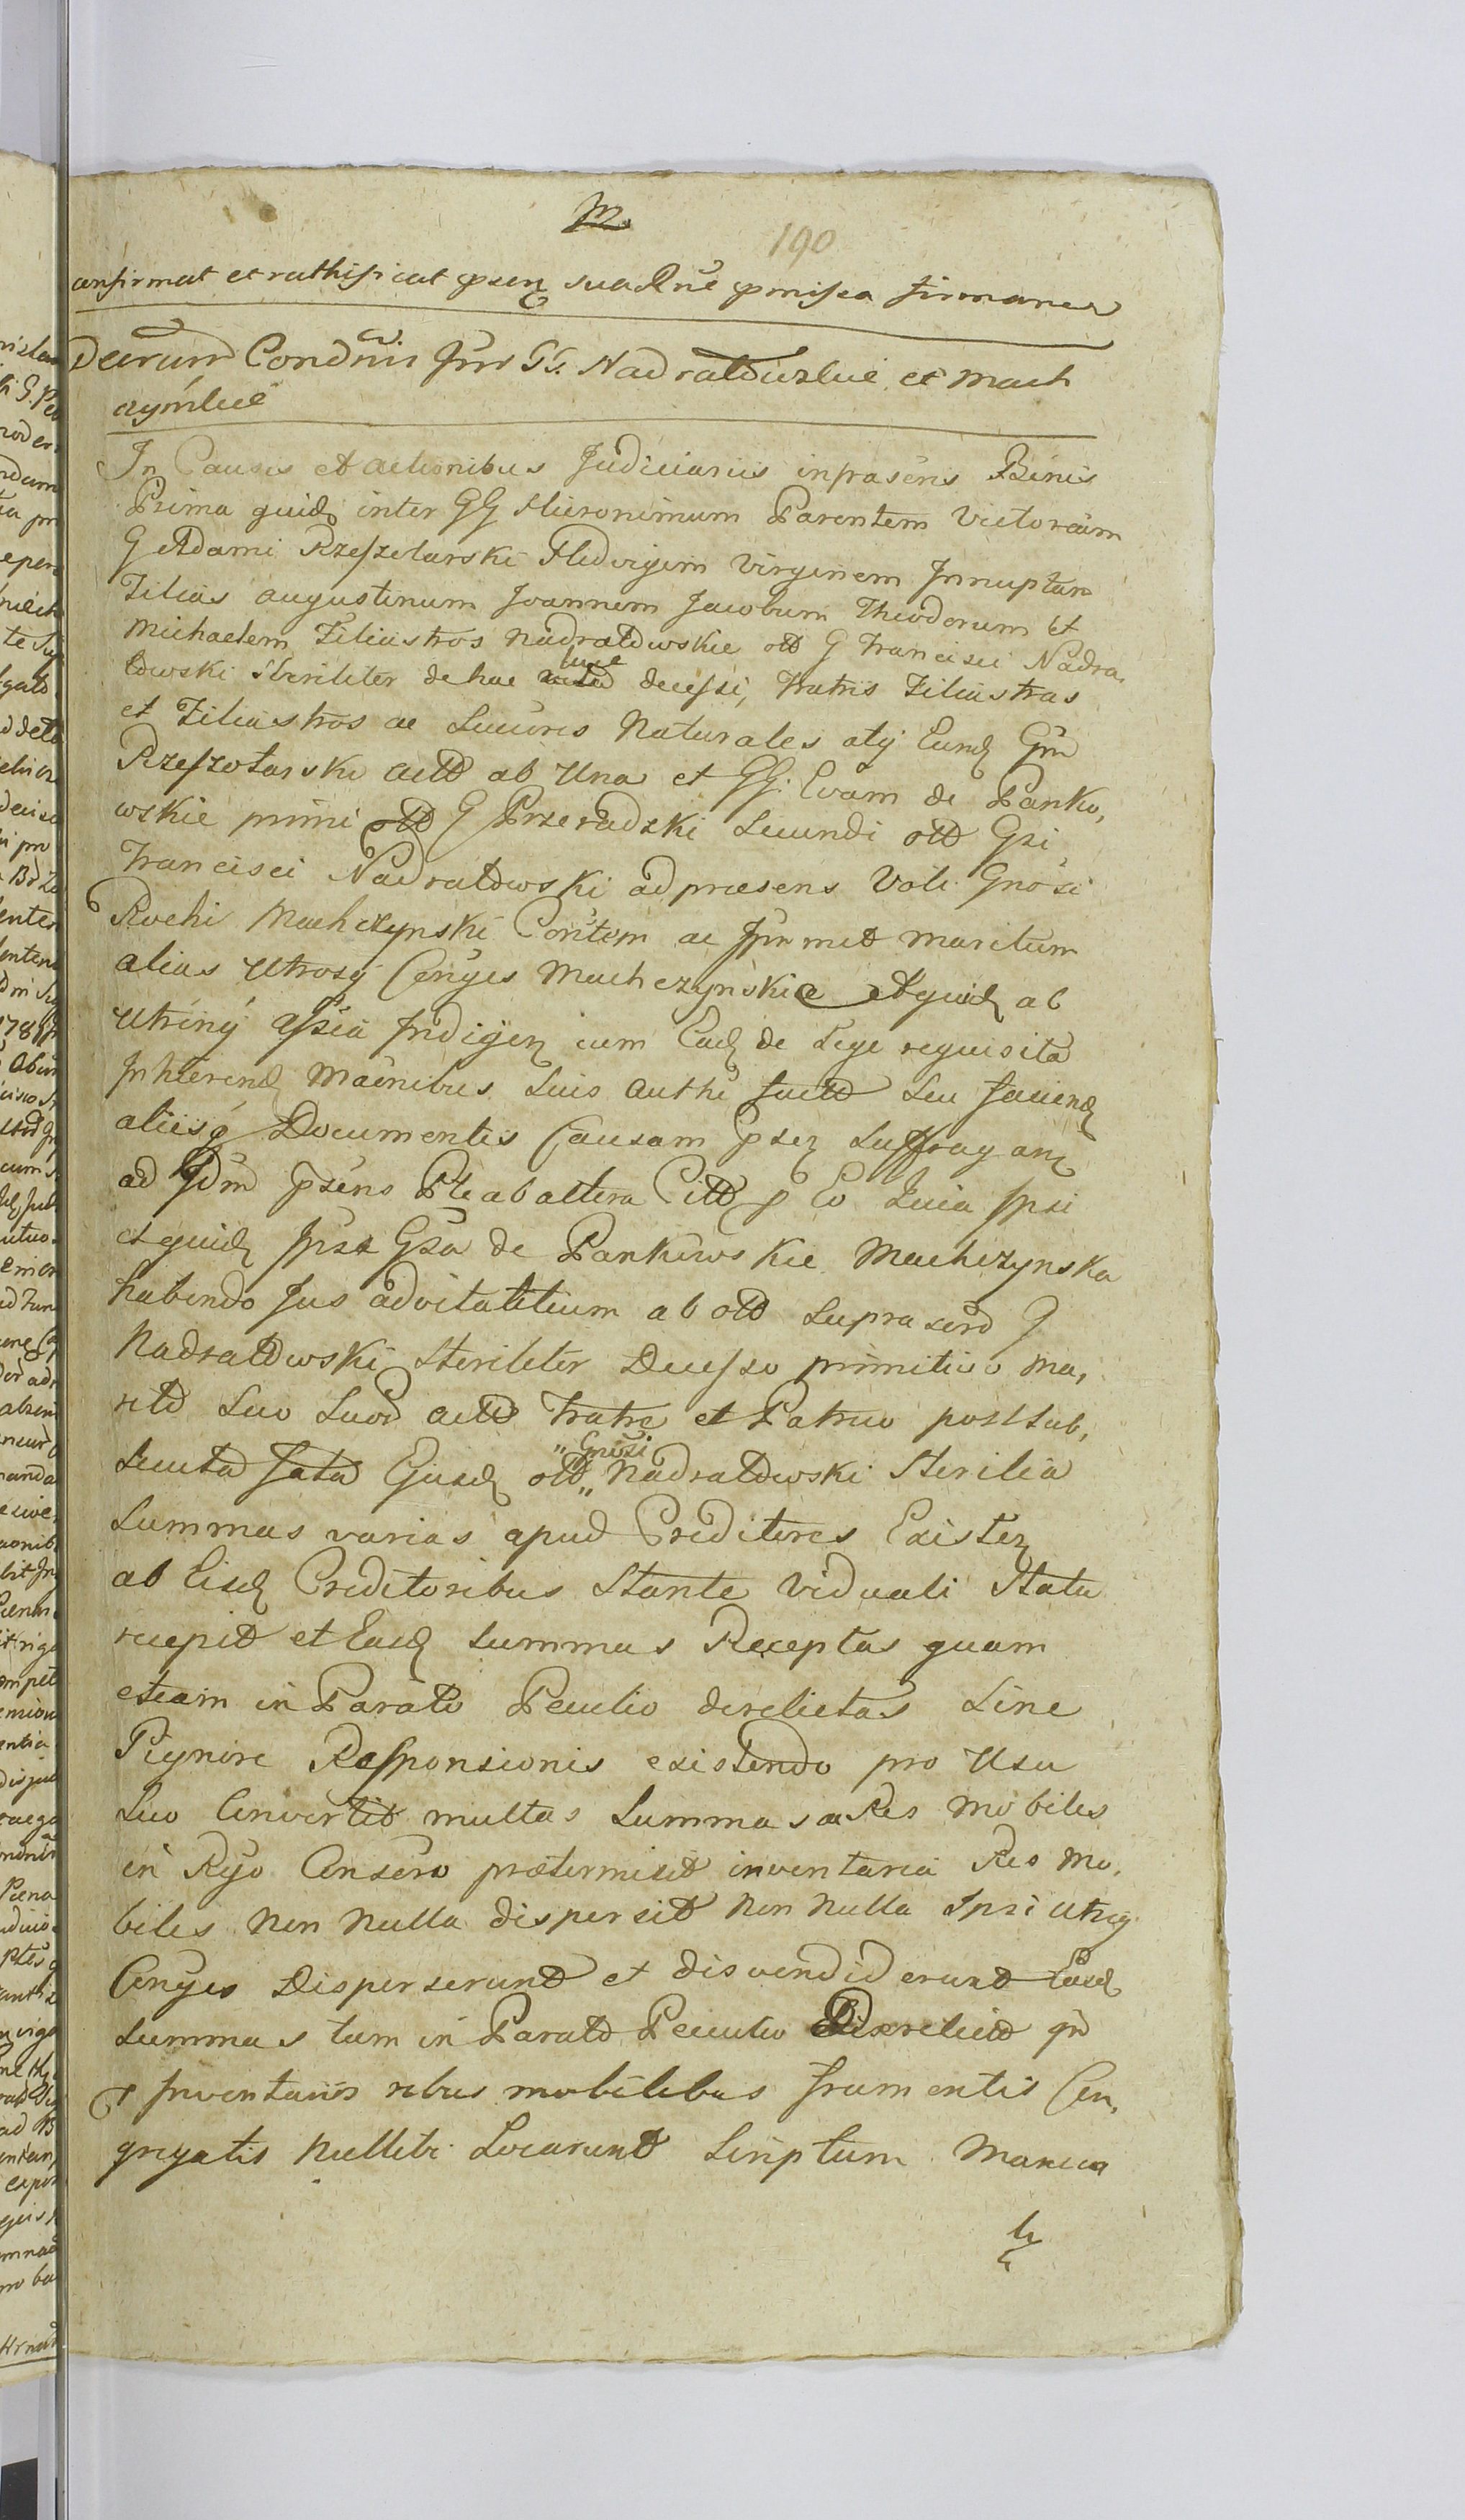 190
confirmat et rathificat psen suadne pmissa firmanes
Decretum Condnis Inr GG. Nadraldwskie et Mach
czynskie
In Causis et actionibus Judiciariis inprasens Binis
Prima quid inter GG Hieronimum Parentem Victoriam
G Adami Rzeszotarski Hedvigim Virginem Innuptam
Filias Augustinum Joannem Jacobum Theodorum et
Michaelem Filiastros Nadraldwskie old G Francisci Nadra,
ldwski Steriliter de hac luce decessi, Fratris Filiastras
et Filiastros ac Sucores Naturales atq Eund Gm
Rzeszotarski actt ab Una et GG. Evam de Panko,
wskie primi ott G Przeradzki Secundi ott Gsi
Francisci Nadraldwski ad praesens Voli Gnosi
Rochi Machczynski Contem ac Ipmmet maritum
alias Utrosq Conges Machczynskie et quid ab
utrinq assia Indigen cum Ead de Lege requisita
Inhaerend Mainibus Suis Authi factt Seu faciend
aliisq Documentis Causam psen Suffragan
ad Idm psens Ple ab altera Citt p Eo quia Ipsi
et quid Ipsa Gsa de Pankowskie Machczynska
habendo Jus advitalitium ab ott suprascrd G
Nadraldwski Steriliter Decesso primitivo ma,
rito Suo Suod actt Fratre et Patruo post sub,
secuta fata Ejusd ott „Gnosi„ Nadraldwski Sterilia
Summas varias apud Creditores Existen
ab Eisd Creditoribus Stante Viduali Statu
recepit et Easd Summas Receptas quam
etiam in Parato Peculio derelictas Sine
Pignore Responsionis existendo pro Usu
Suo Convertit multas Summas a Res mobiles
in Rgo Consero praetermisit inventaria Res mo,
biles non nulla dispersit non nulla Ipsi utriq
Conges Disperserunt et disvendiderunt Easd
Summas tam in Parato Peculio Derelicto qd
p Inventariis rebus mobilibus frumentis Con,
gregatis Nullibi Locarunt Scriptum Manua